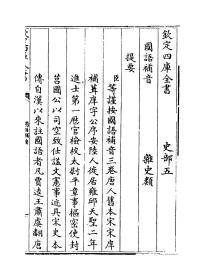 欽定四庫全書　史部五
國語補音　雜史類
提要
臣等謹按國語補音三卷唐人舊本宋宋庠
補葺庠字公序安陸人徙居雍邱天聖二年
進士第一歷官檢校太尉平章事樞密使封
莒國公以司空致仕諡文憲事迹具宋史本
傳自漢以來註國語者凡賈逵王肅虞翻唐